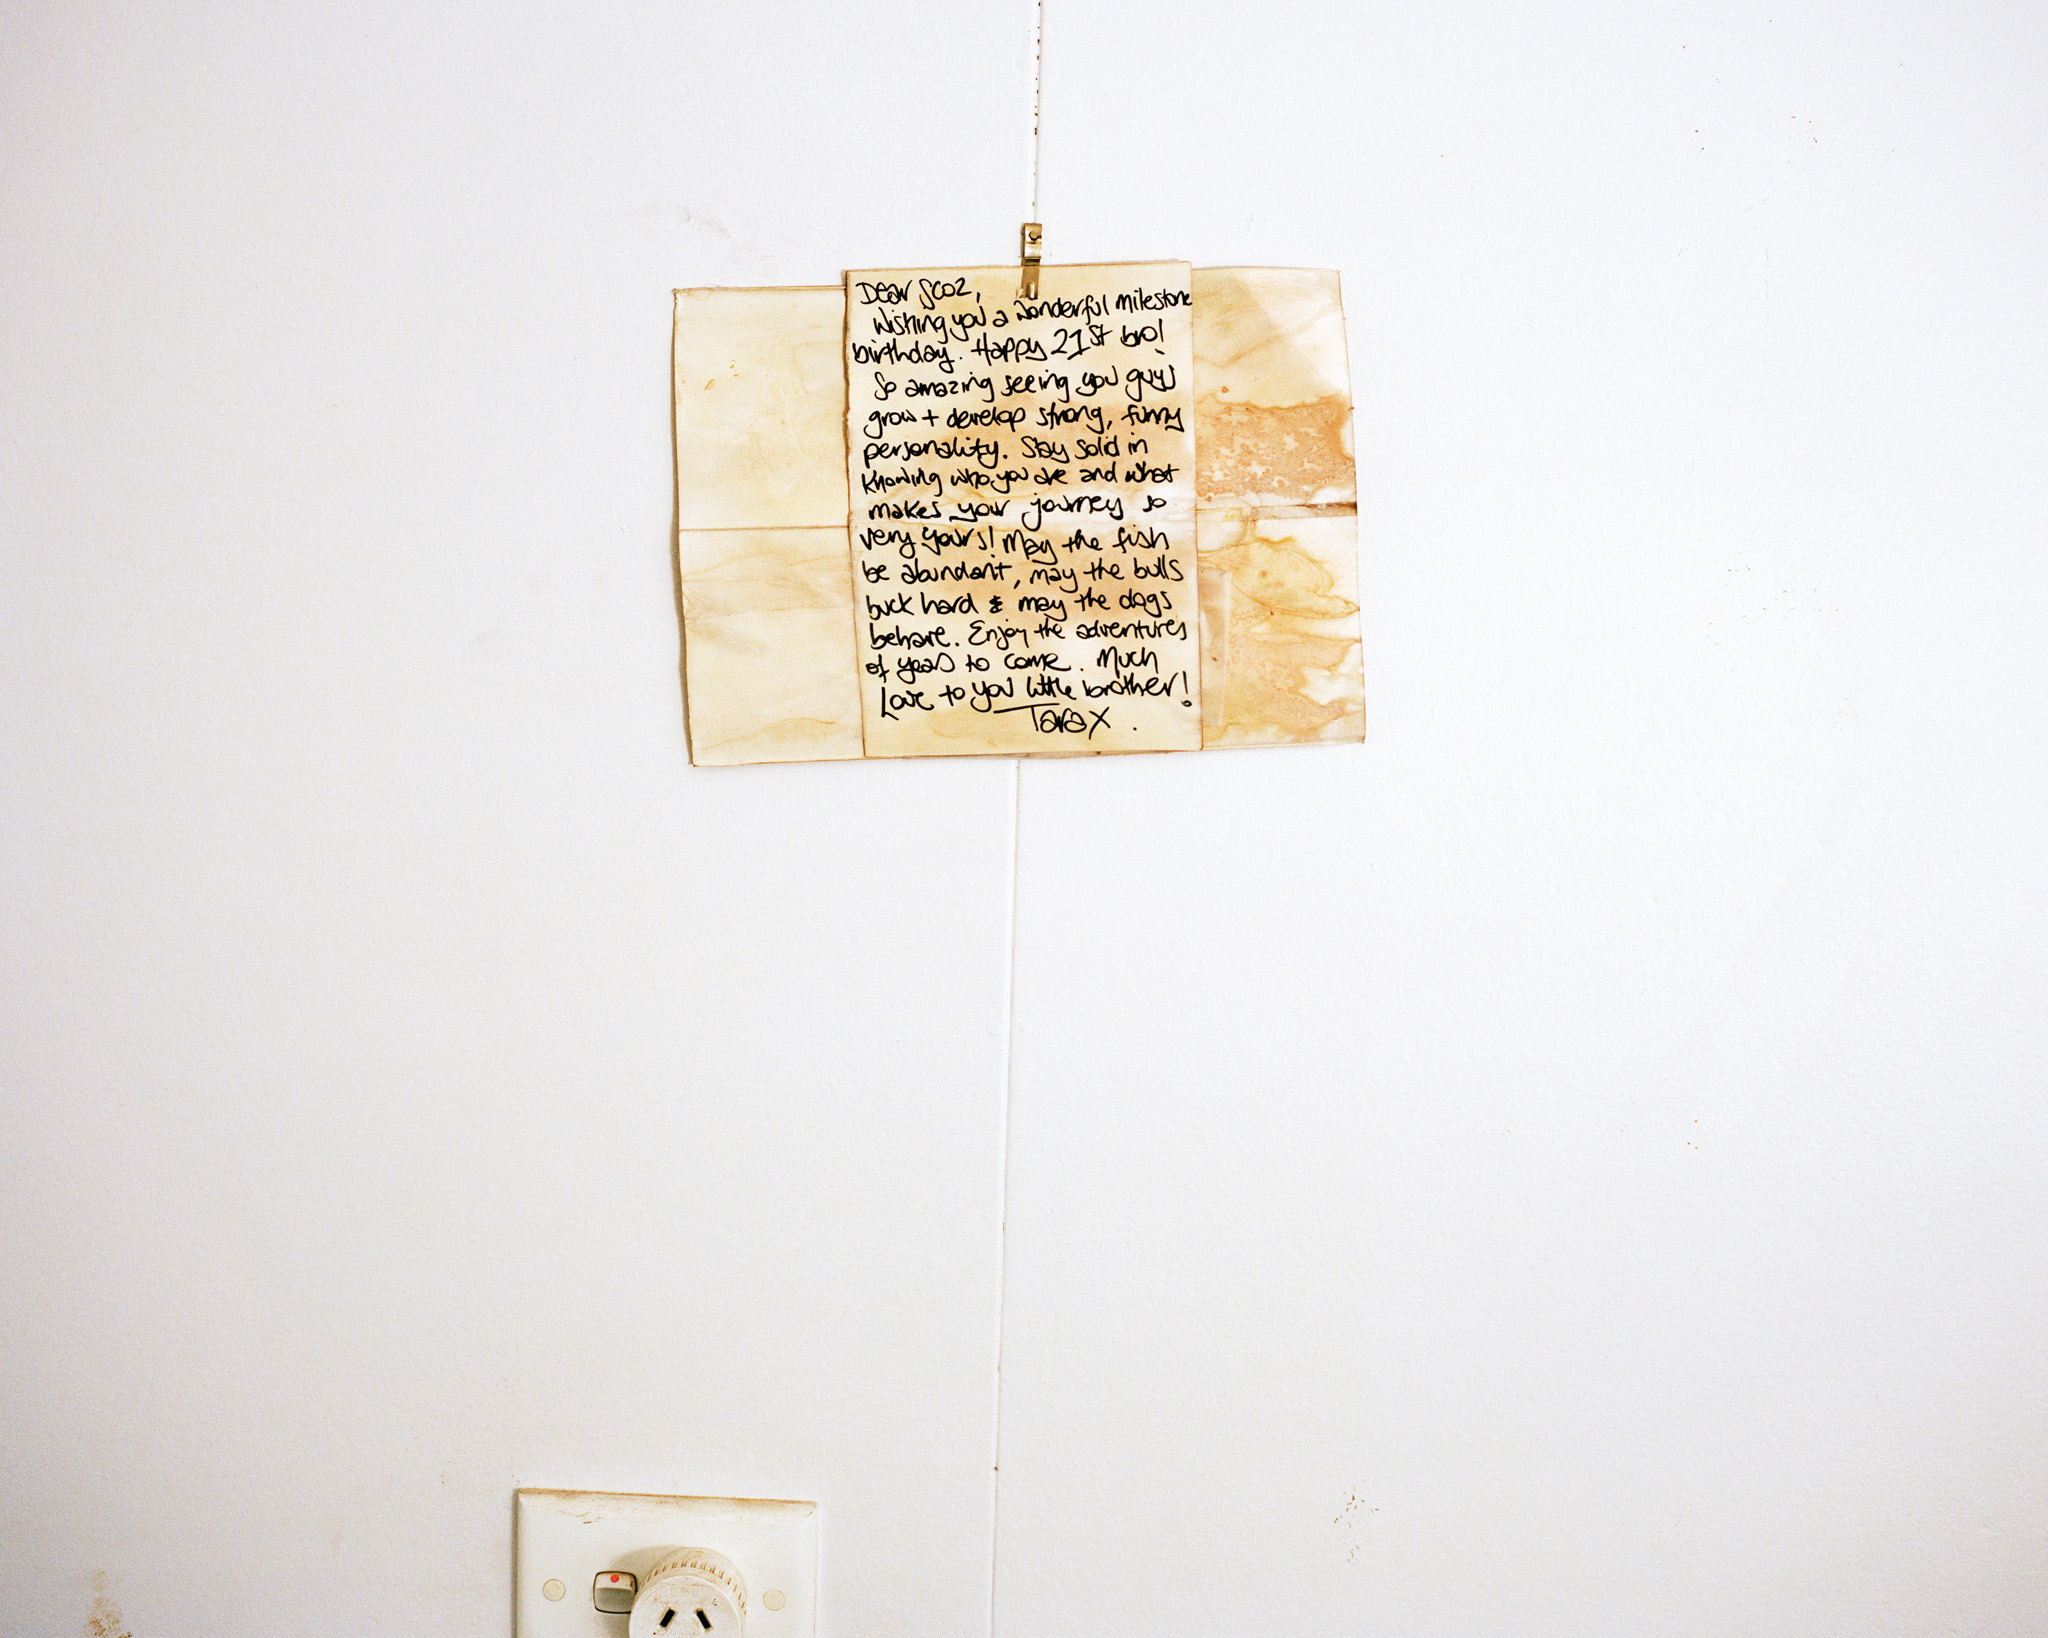 Dear Scoz,
Wishing you a wonderful milestone
birthday. Happy 21st bro!
So amazing seeing you guys
grow + develop strong, funny
personality. Stay solid in
knowing who you are and what
makes your journey so
very yours! May the fish
be abundant, may the bulls
buck hard & may the dogs
behave. Enjoy the adventures
of years to come. Much
Love to you little brother!
Tara X.